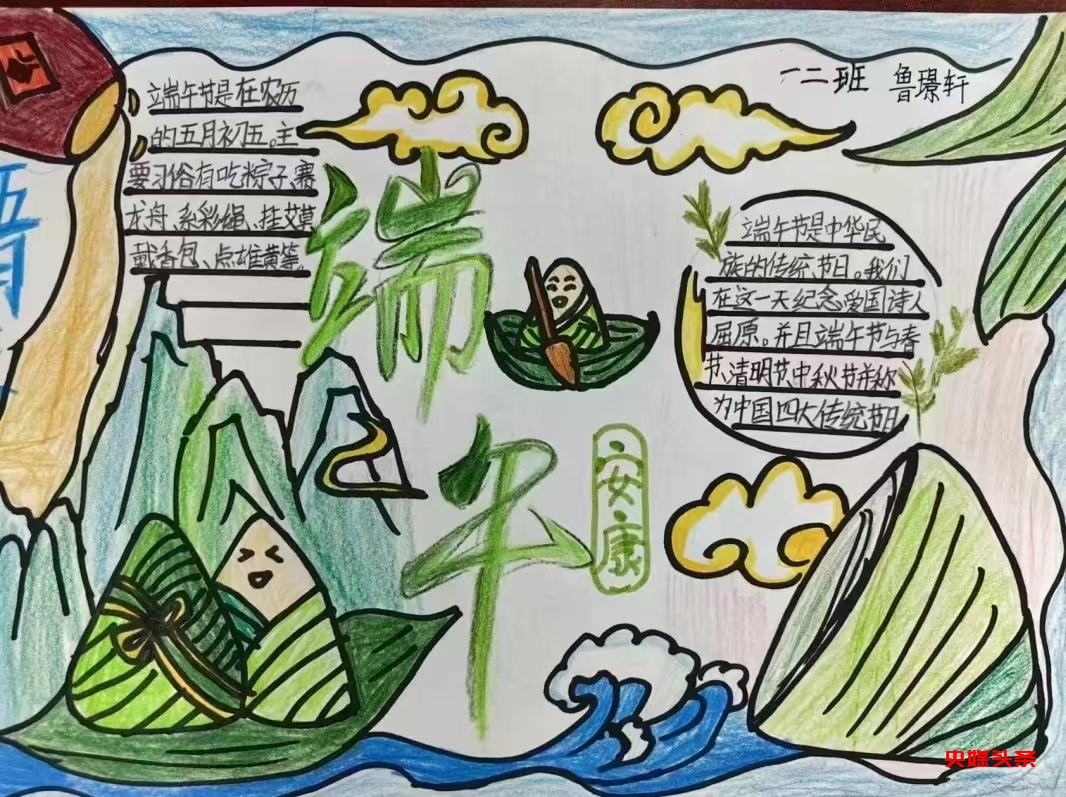 一二班 鲁璟轩
端午节是在农历
的五月初五。主
要习俗有吃粽子、赛
龙舟、系彩绳、挂艾草
戴香包、点雄黄等。
端午
安康
端午节是中华民
族的传统节日。我们
在这一天纪念爱国诗人
屈原。并且端午节与春
节、清明节、中秋节并称
为中国四大传统节日
央媒头条